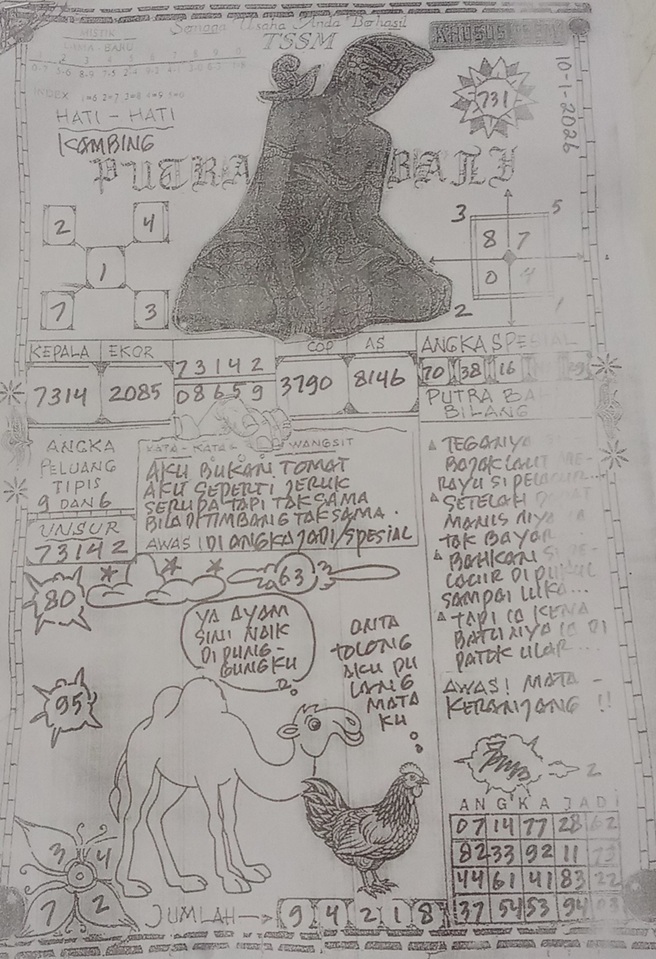 Semoga Usaha Anda Berhasil
TSSM
MISTIK
LAMA - BARU
INDEX
HATI - HATI
KAMBING
731
10-1-2026
PUTRA BALI
2 4
1
7 3
3 5
8 7
0 4
2 1
KEPALA EKOR
7314 2085
73142
08659
COP AS
3790 8146
ANGKA SPESIAL
70 38 16
PUTRA BA
BILANG
ANGKA
PELUANG
TIPIS
9 DAN 6
UNSUR
73142
KATA - KATA WANGSIT
AKU BUKAN TOMAT
AKU SEPERTI JERUK
SERUPA TAPI TAK SAMA
BILA DITIMBANG TAK SAMA.
AWAS! DI ANGKA JADI/SPESIAL
TEGANYA
BAJAK LAUT ME-
RAYU SI PELACUR...
SETELAH DAPAT
MANIS NIYA IA
TAK BAYAR
BAHKAN SI PE-
LACUR DI PUKUL
SAMPAI LUKA...
TAPI IA KENA
BATUNYA IA DI
PATOK ULAR...
AWAS! MATA -
KERANJANG !!
80
63
95
YA AYAM
SINI NAIK
DI PUNG-
GUNGKU
ONTA
TOLONG
AKU PU
LANG
MATA
KU
2
ANGKA JADI
07 14 77 28 62
82 33 92 11 73
44 61 41 83 22
37 54 53 94 03
3 4
7 2
JUMLAH 9 4 2 1 8